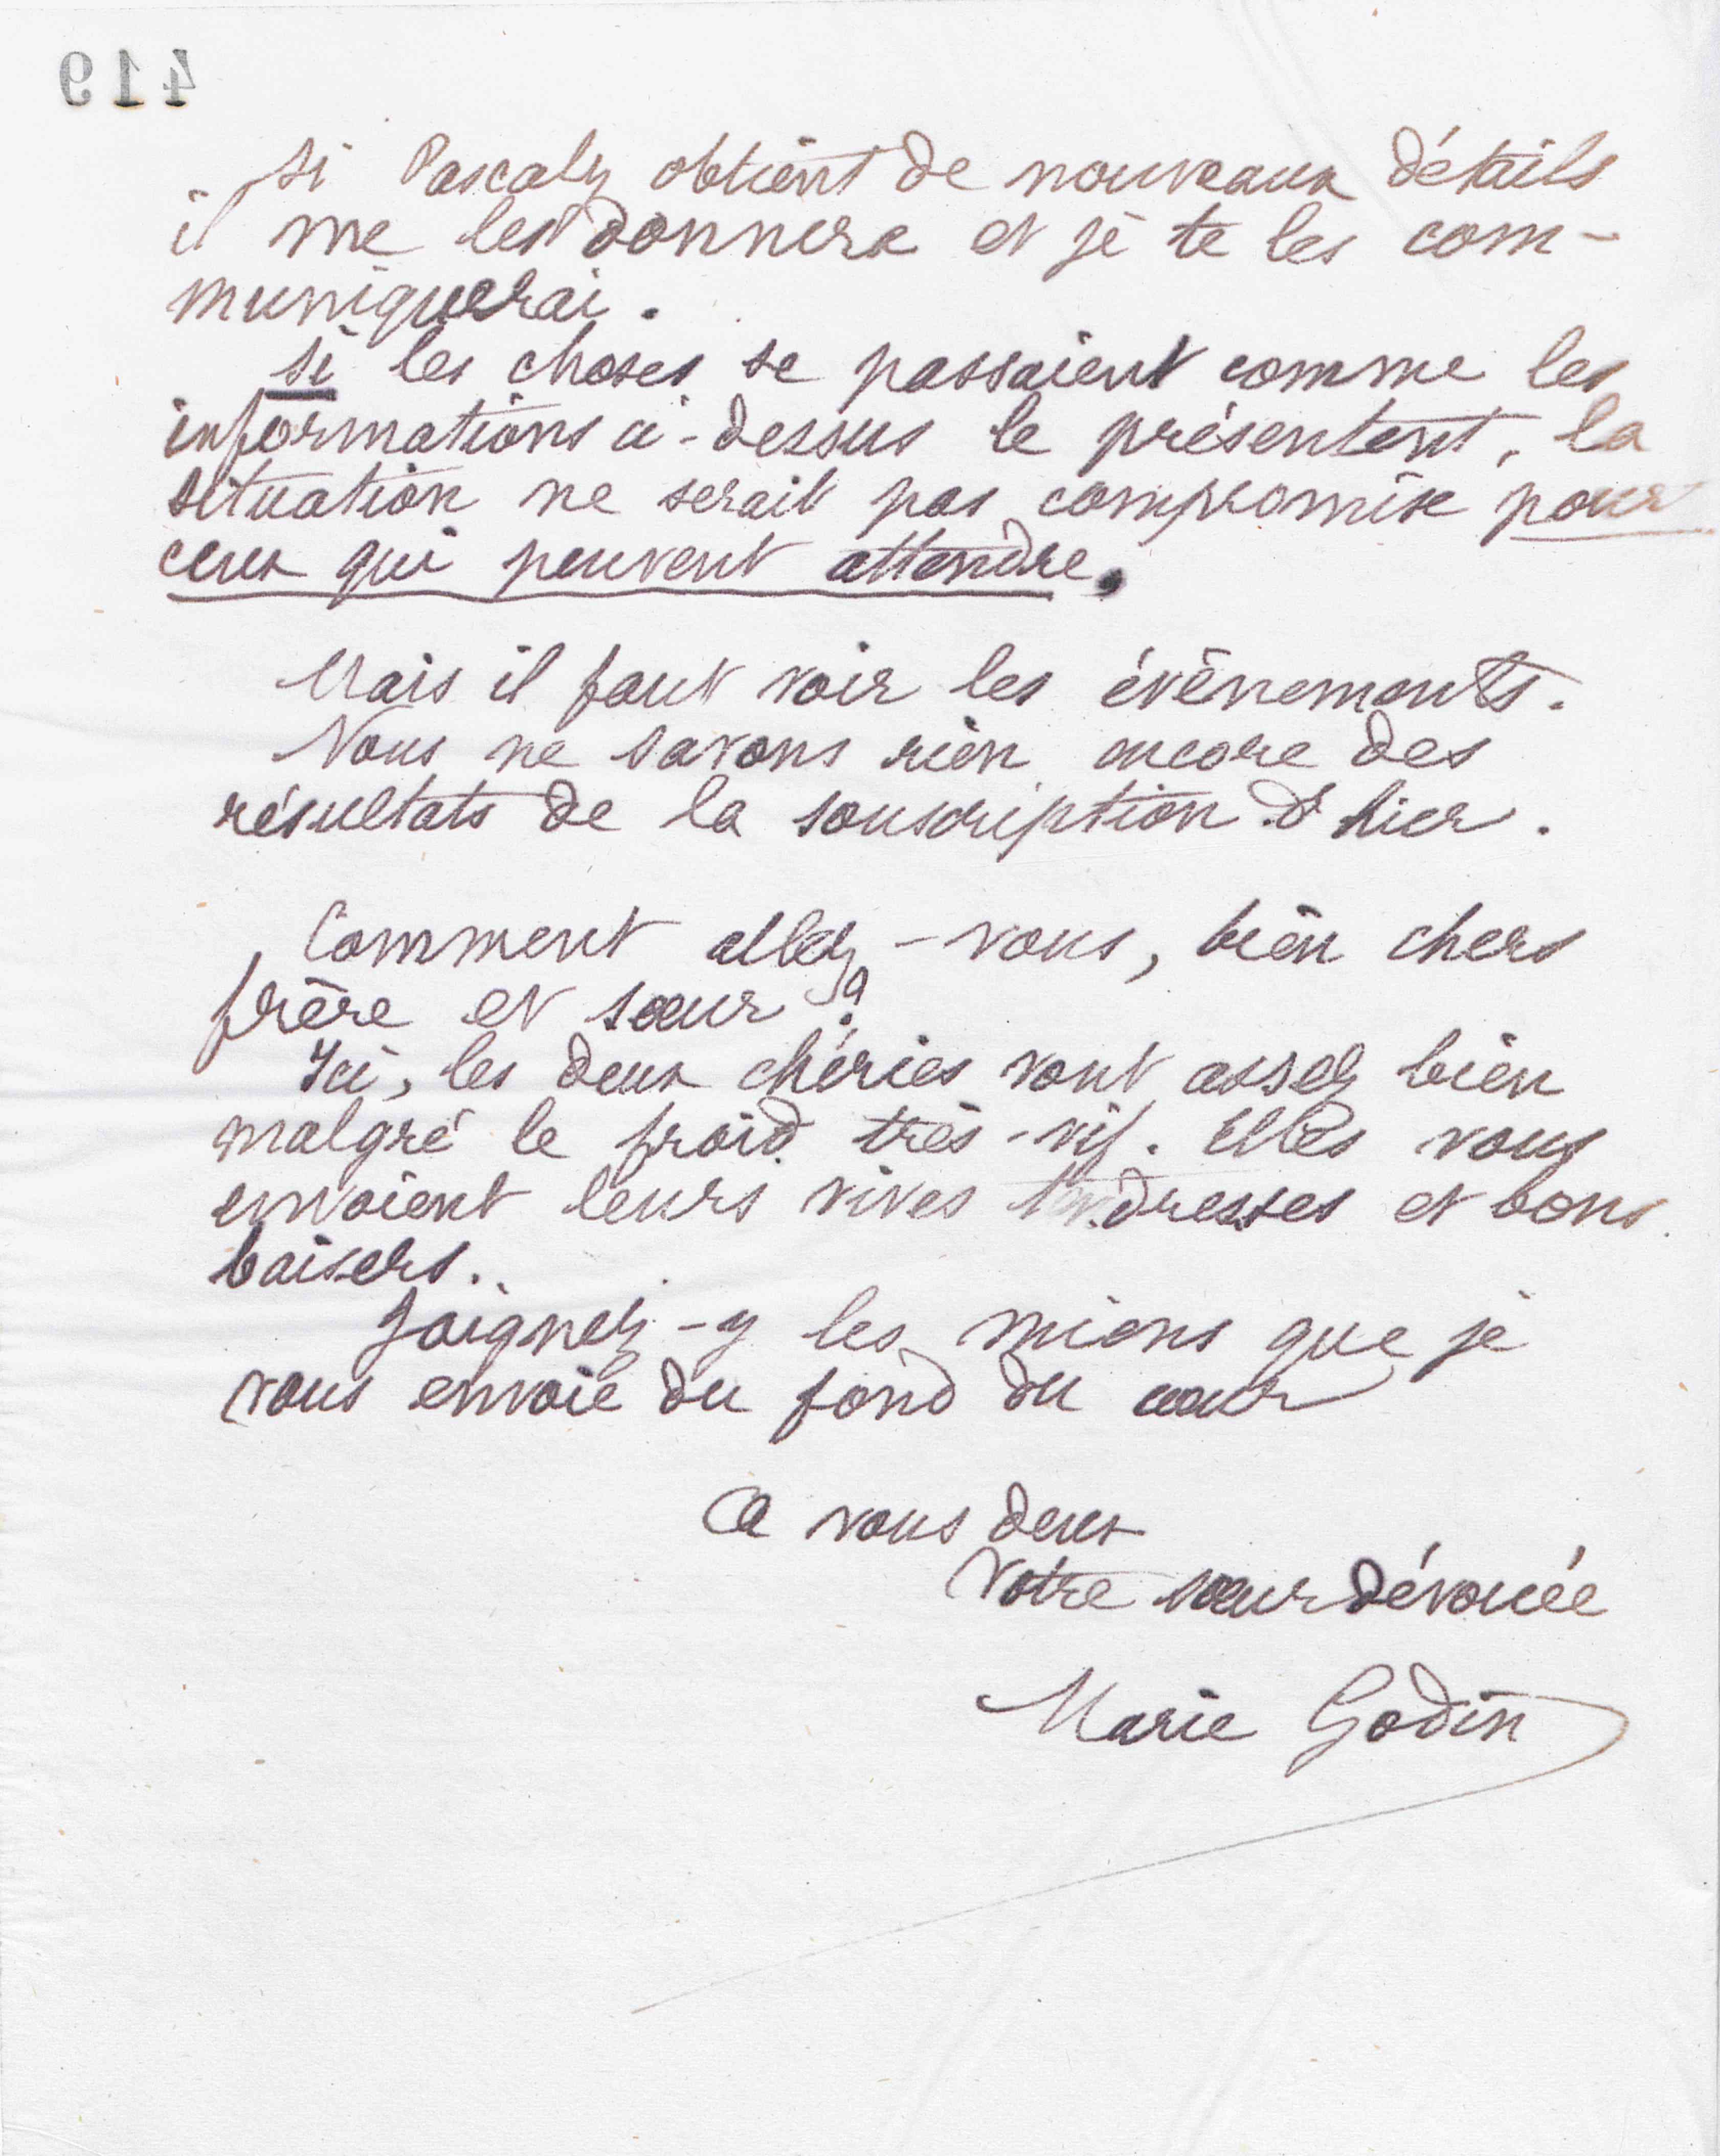 419
Si Pascaly obtient de nouveaux détails
il me les donnera et je te les com-
muniquerai.
Si les choses se passaient comme les
informations ci-dessus le présentent, la
situation ne serait pas compromise pour
ceux qui peuvent attendre.
Mais il faut voir les évènements.
Nous ne savons rien encore des
résultats de la souscription d'hier.
Comment allez-vous, bien chers
frère et sœur ?
Ici, les deux chéries vont assez bien
malgré le froid très-vif. Elles vous
envoient leurs vives tendresses et bons
baisers.
Joignez-y les miens que je
vous envoie du fond du cœur
A vous deux
Votre sœur dévouée
Marie Godin